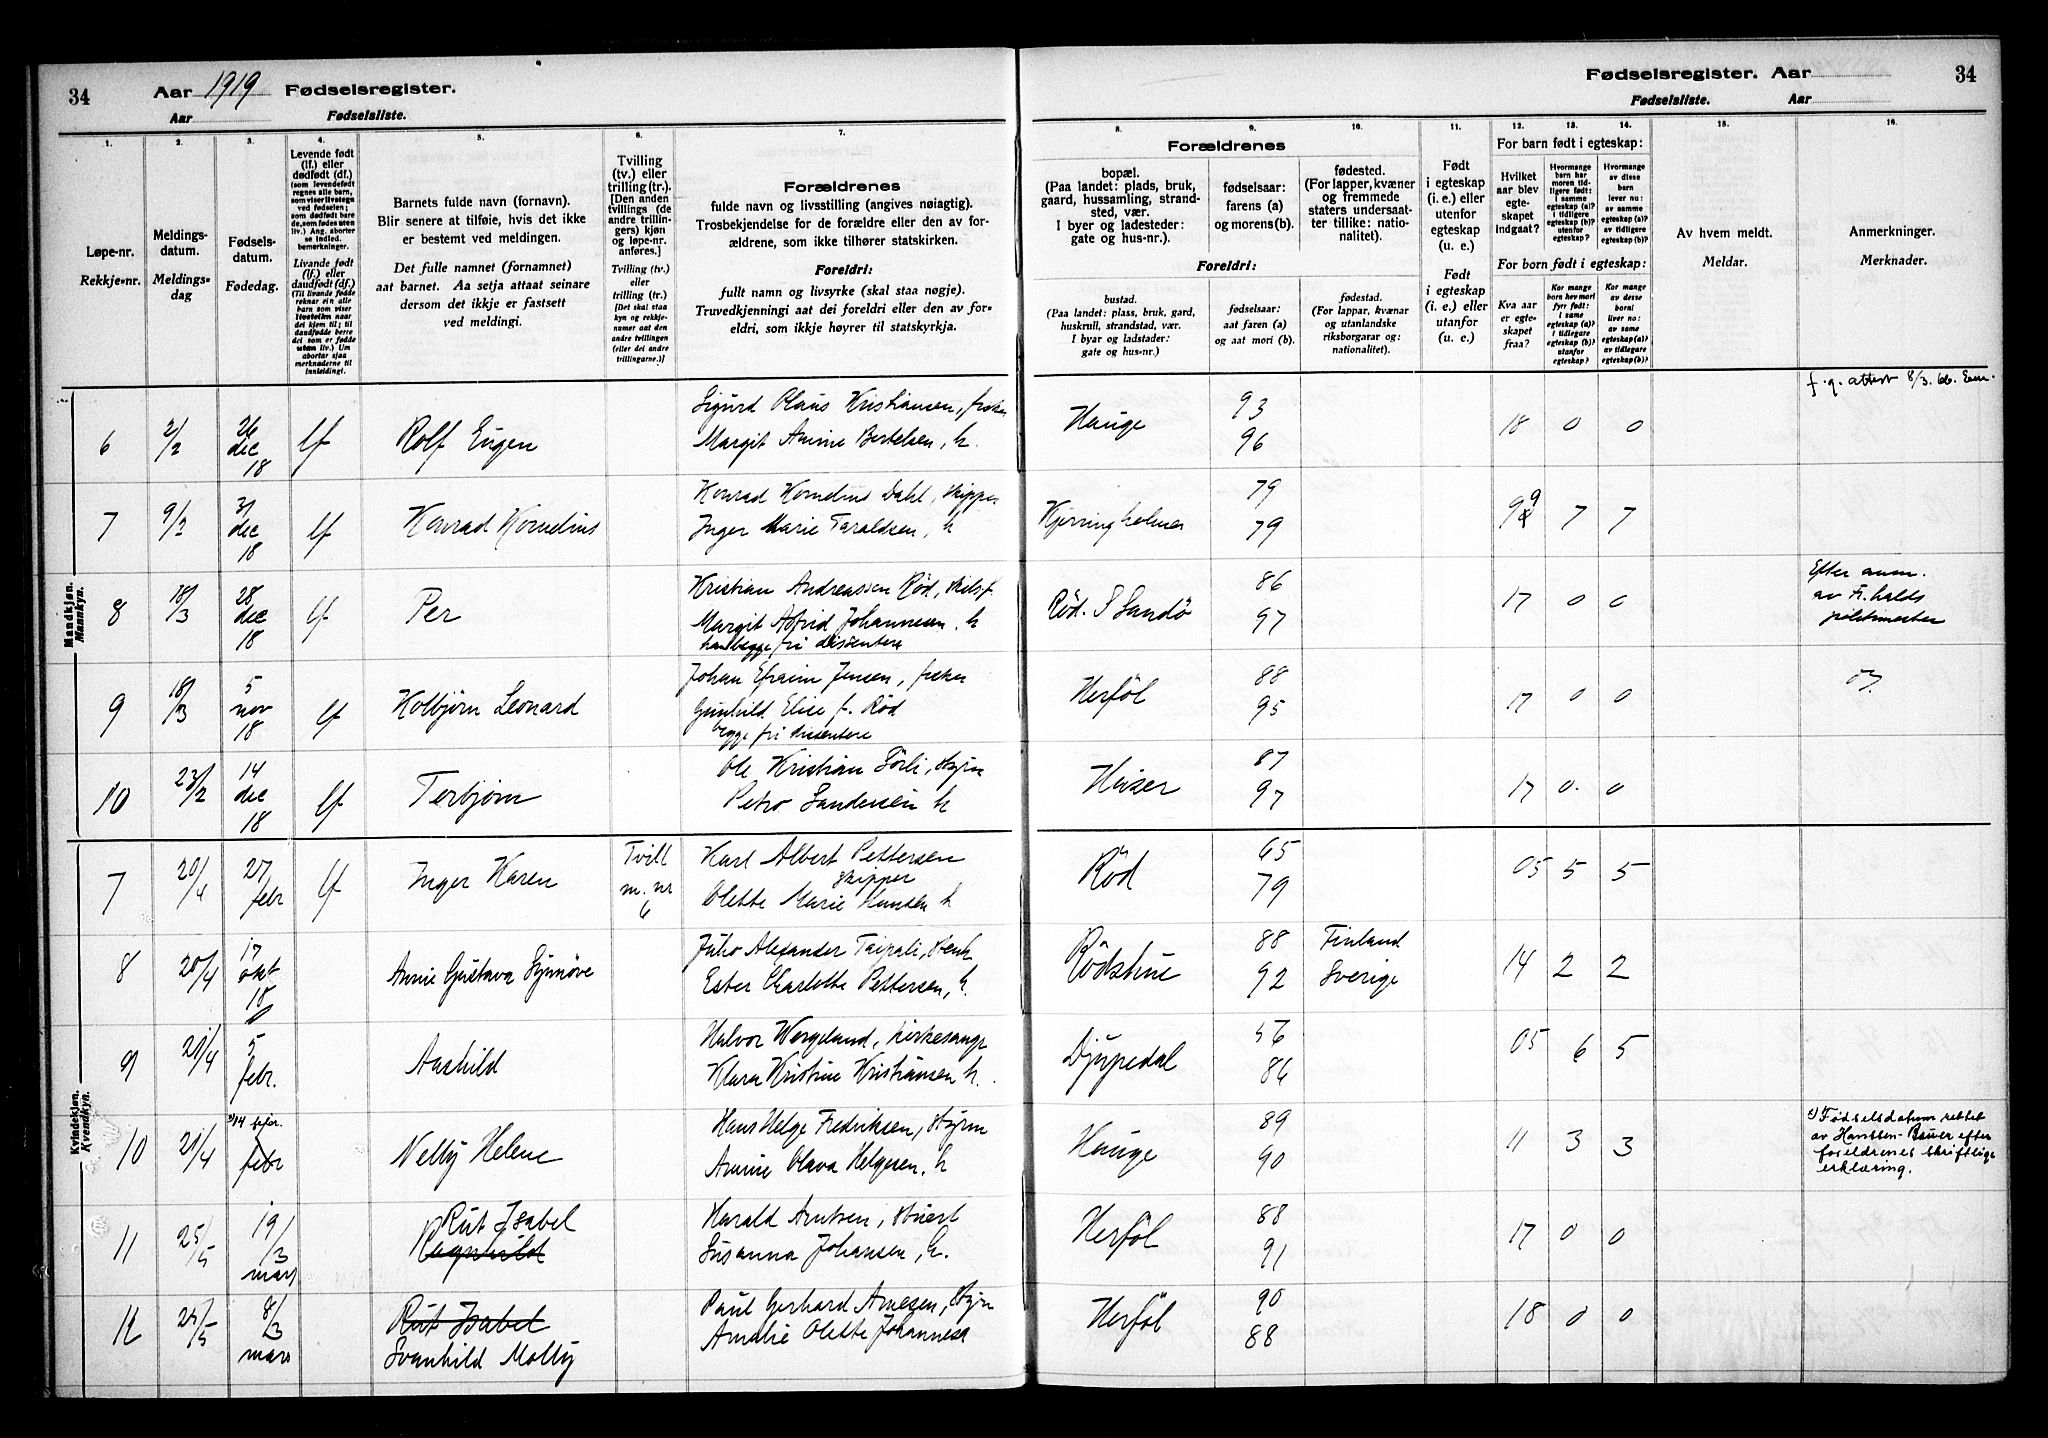 34
Aar 1919 Fødselsregister.
Aar Fødselsliste.
Fødselsregister. Aar
34
Fødselsliste. Aar
1.
Løpe-nr.
Rekkje-nr.
2.
Meldings-
datum.
Meldings-
dag
3.
Fødsels-
datum.
Fødedag.
4.
Levende født
(lf.) eller
dødfødt (df.)
Livande fødd
(lf.) eller
daudfødt (df.)
5.
Barnets fulde navn (fornavn).
Blir senere at tilføie, hvis det ikke
er bestemt ved meldingen.
Det fulle namnet (fornamnet)
aat barnet. Aa setja attaat seinare
dersom det ikkje er fastsett
ved meldingi.
6.
Tvilling
(tv.) eller
trilling (tr.).
[Den anden
tvillings (de
andre trillin-
gers) kjøn
og løpe-nr.
anføres.]
Tvilling (tv.)
eller
trilling (tr.)
[Det skal staa
kyn og rekkje-
numer aat den
andre tvillingen
(eller dei andre
trillingarne.)]
7.
Forældrenes
fulde navn og livsstilling (angives nøiagtig).
Trosbekjendelse for de forældre eller den av for-
ældrene, som ikke tilhører statskirken.
Foreldri:
fullt namn og livsyrke (skal staa nøgje).
Truvedkjenningi aat dei foreldri eller den av for-
eldri, som ikkje høyrer til statskyrkja.
Forældrenes
8.
bopæl.
(Paa landet: plads, bruk,
gaard, hussamling, strand-
sted, vær.
I byer og ladesteder:
gate og hus-nr.).
9.
fødselsaar:
farens (a)
og morens (b).
10.
fødested.
(For lapper, kvæner
og fremmede
staters undersaat-
ter tillike: natio-
nalitet).
Foreldri:
bustad.
(Paa landet: plass, bruk, gard,
huskrull, strandstad, vær.
I byar og ladstader:
gate og hus-nr.)
fødselsaar:
aat faren (a)
og aat mori (b).
fødestad.
(For lappar, kvænar
og utanlandske
riksborgarar og:
nationalitet).
11.
Født
i egteskap
(i. e.) eller
utenfor
egteskap
(u. e.)
Født
i egteskap
(i. e.) eller
utanfor
(u. e.)
12. 13. 14.
For barn født i egteskap:
Hvilket
aar blev
egte-
skapet
indgaat?
Hvormange
barn har
moren tid-
ligere født:
i samme
egteskap (a)?
i tidligere
egteskap (b)?
utenfor
egteskap?
Hvormange
av disse
barn
lever nu:
av samme
egteskap (a)?
av tidligere
egteskap (b)?
For born født i egteskap:
Kva aar
er egte-
skapet
fraa?
15.
Av hvem meldt.
Meldar.
16.
Anmerkninger.
Merknader.
Mandkjøn.
Mannkyn.
6 2/2 26 dec 18 lf Rolf Eugen
Sigurd Olaus Kristiansen, fisker
Margit Amine Bertelsen, h.
Hauge 93 96 18 0 0
f.q. attest 8/3.66.
7 9/2 31 dec 18 lf Konrad Kornelius
Konrad Kornelius Dahl, skipper
Inger Marie Taraldsen, h
Kjerringholmen 79 79 99 7 7
8 18/3 28 dec 18 lf Per
Kristian Andreassen Rød,
Margit Astrid Johannesen. h
begge fri dissentere
Rød. S Sandö 86 97 17 0 0
Efter anm.
av Fr.halds
politimester
9 18/3 5 nov 18 lf Kolbjørn Leonard
Johan Efraim Jensen, fisker
Gunhild Elise f. Rød
begge fri dissentere
Herföl 88 95 17 0 0
10 23/2 14 dec 18 lf Torbjørn
Ole Kristian Sörli, styrm
Petra Sandersen h
Huser 87 97 17 0 0
Kvindekjøn.
Kvendkyn.
7 20/4 27 febr lf Inger Karen
Tvill m. nr 6
Karl Albert Pettersen
skipper
Olette Marie Hansen h
Rød 65 79 05 5 5
8 20/4 17 okt 18 Annie Gustava Synnøve
Juho Alexander Taipali, stenh
Ester Charlotte Pettersen, h.
Rödshue 88 92 Finland Sverige 14 2 2
9 20/4 5 febr. Aashild
Halvor Wergeland, kirkesanger
Klara Kristine Kristiansen h.
Djupedal 56 86 05 6 5
10 21/4 x) 14 febr. febr Nelly Helene
Hans Helge Fredriksen, styrm
Amine Olava Helgesen, h
Hauge 89 90 11 3 3
x) Fødselsdatum rettet
av Hanssen-Bauer efter
foreldrenes skriftlige
erklæring.
11 25/5 19/3 mars Rut Isabel
Ragnhild
Harald Arntsen, stuert
Susanna Johansen, h.
Herföl 88 91 17 0 0
12 25/5 8/3 mars Rut Isabel
Svanhild Molly
Paul Gerhard Arnesen, styrm
Amalie Olette Johannesen
Herföl 90 88 18 0 0